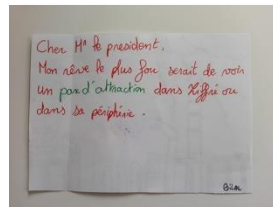 Cher Mr le president,
Mon rêve le plus fou serait de voir
un parc d'attraction dans Ziffré ou
dans sa périphérie.